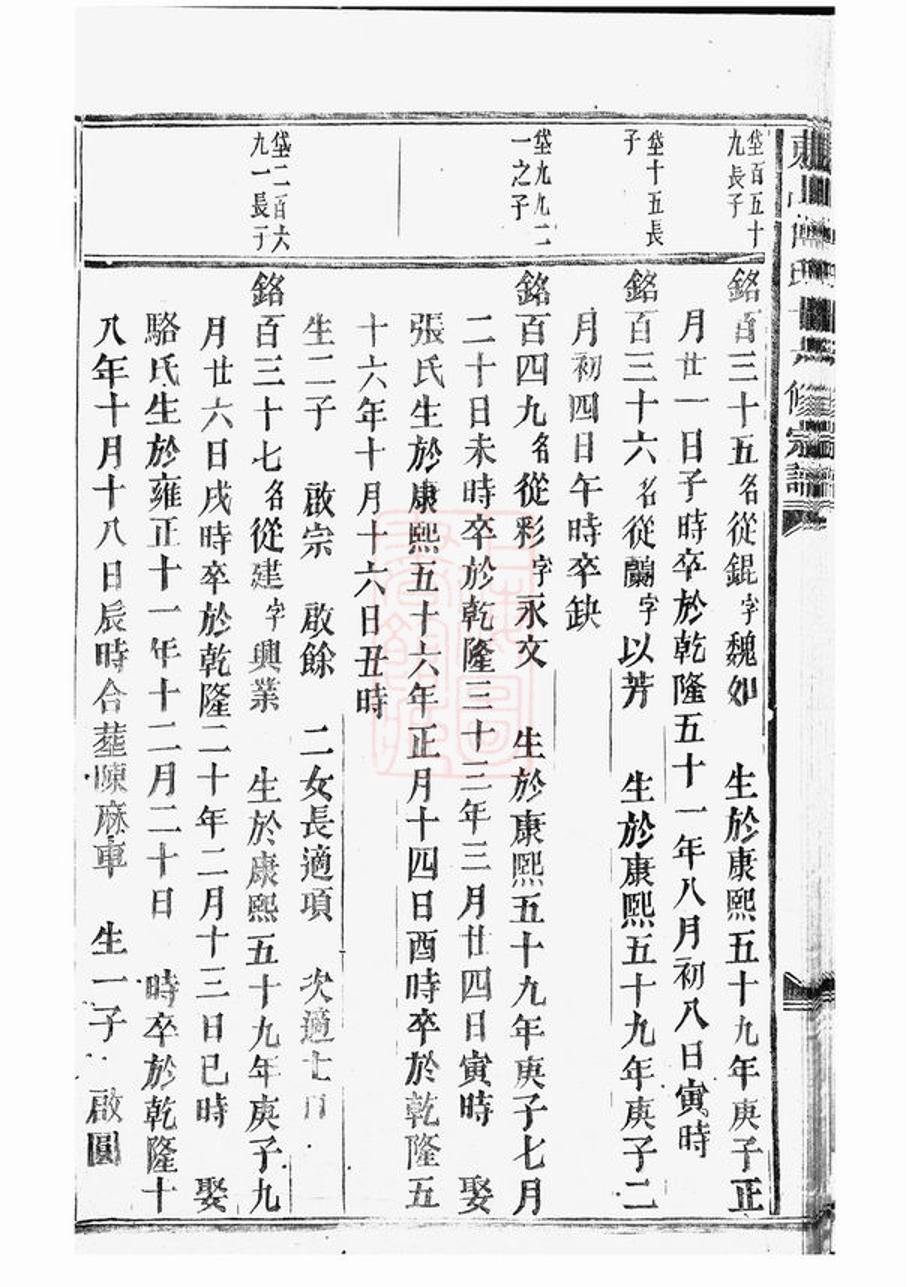 修宗譜
垈百五十
九長子
銘百三十五名從錕字魏如　生於康熙五十九年庚子正
月廿一日子時卒於乾隆五十一年八月初八日寅時
垈十五長
子
銘百三十六名從鸝字以芳　生於康熙五十九年庚子二
月初四日午時卒缺
垈九九二
一之子
銘百四九名從彩字永文　生於康熙五十九年庚子七月
二十日未時卒於乾隆三十三年三月廿四日寅時　娶
張氏生於康熙五十六年正月十四日酉時卒於乾隆五
十六年十月十六日丑時
生二子　啟宗　啟餘　二女長適項　次適
垈二百六
九一長子
銘百三十七名從建字興業　生於康熙五十九年庚子九
月廿六日戌時卒於乾隆二十年二月十三日巳時　娶
駱氏生於雍正十一年十二月二十日　時卒於乾隆十
八年十月十八日辰時合葬陳麻車　生一子　啟圓